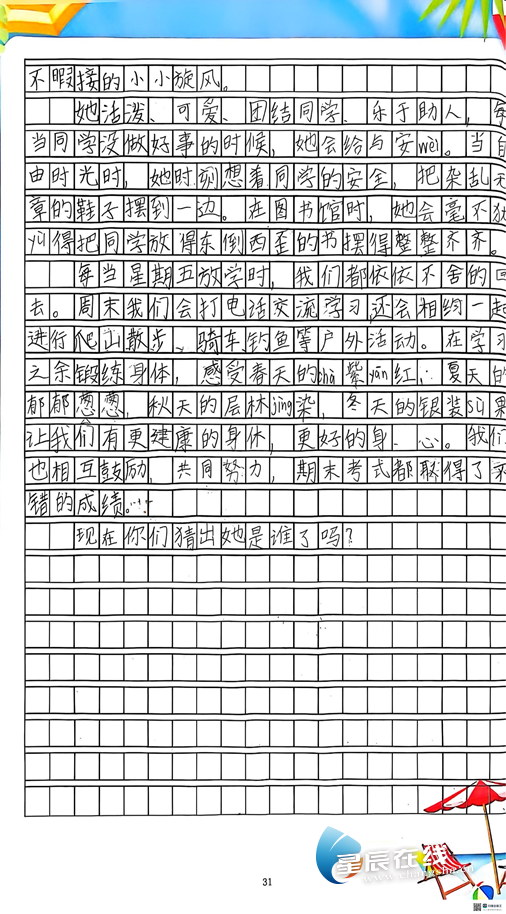 不暇接的小小旋风。
她活泼、可爱、团结同学、乐于助人,每
当同学没做好事的时候,她会给与安wèi。当自
由时光时,她时刻想着同学的安全,把杂乱无
章的鞋子摆到一边。在图书馆时,她会毫不犹
得把同学放得东倒西歪的书摆得整整齐齐。
每当星期五放学时,我们都依依不舍的回
去。周末我们会打电话交流学习,还会相约一起
进行爬山散步、骑车、钓鱼等户外活动。在学习
之余锻练身体,感受春天的chà紫yān红,夏天的
郁郁葱葱,秋天的层林jìng染,冬天的银装sù裹
让我们有更建康的身体,更好的身、心。我们
也相互鼓励,共同努力,期末考式都取得了
错的成绩。……
现在你们猜出她是谁了吗?
31
星辰在线